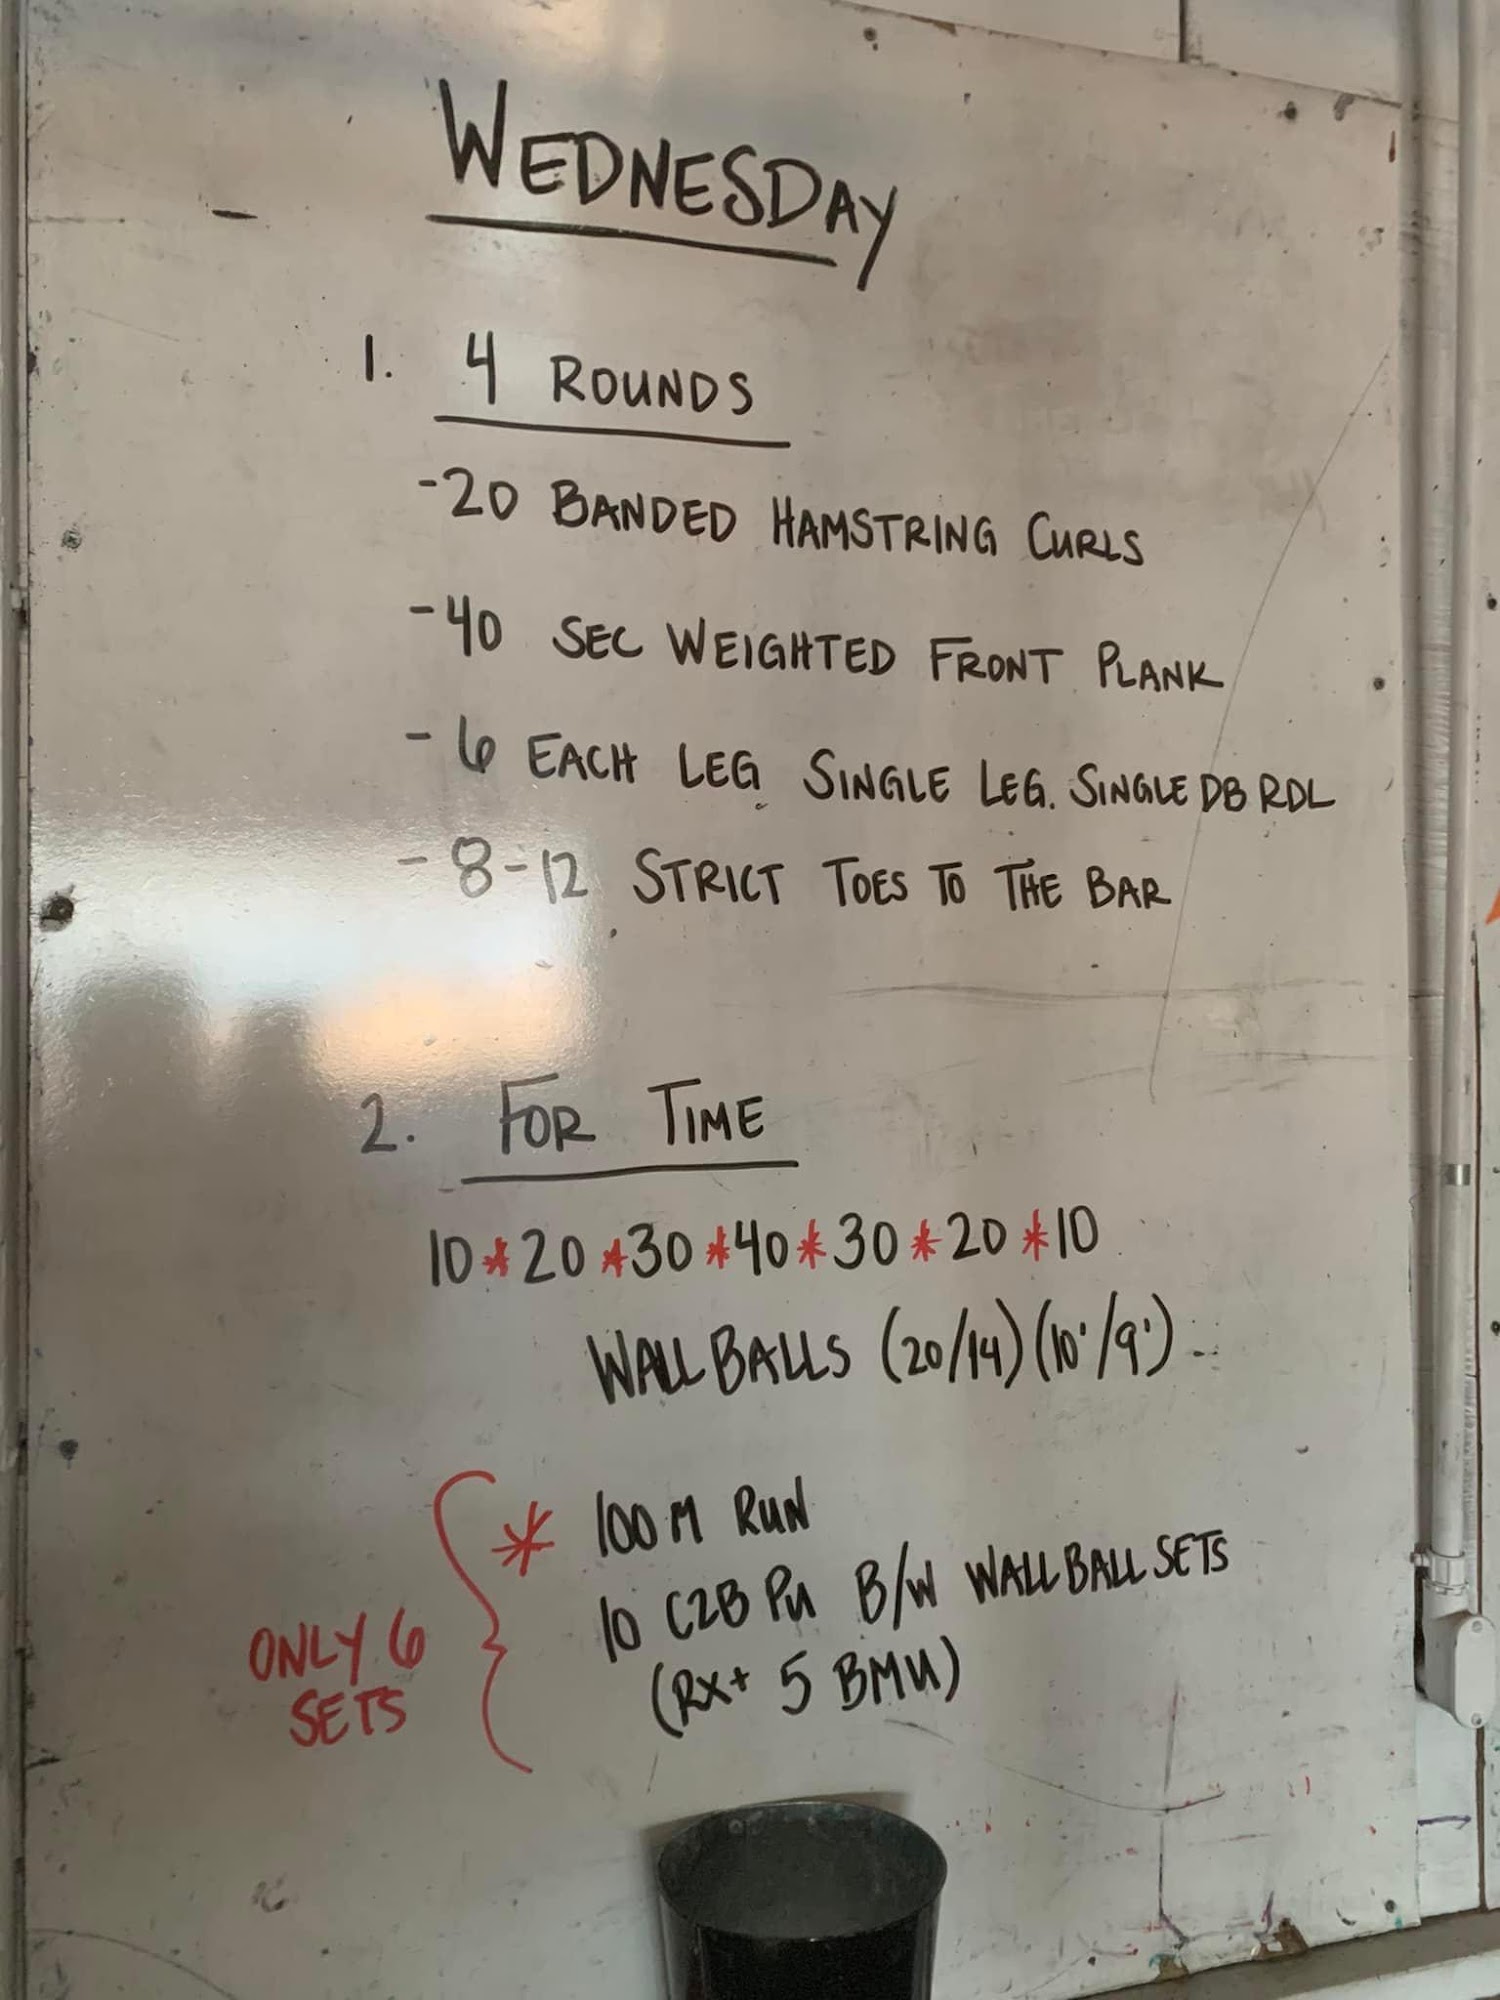 WEDNESDAY
1. 4 ROUNDS
-20 BANDED HAMSTRING CURLS
-40 SEC WEIGHTED FRONT PLANK
-6 EACH LEG SINGLE LEG. SINGLE DB RDL
-8-12 STRICT TOES TO THE BAR
2. FOR TIME
10*20*30*40*30*20*10
WALL BALLS (20/14) (10'/9')
* 100M RUN
10 C2B PU B/W WALL BALL SETS
(RX+ 5 BMU)
ONLY 6
SETS